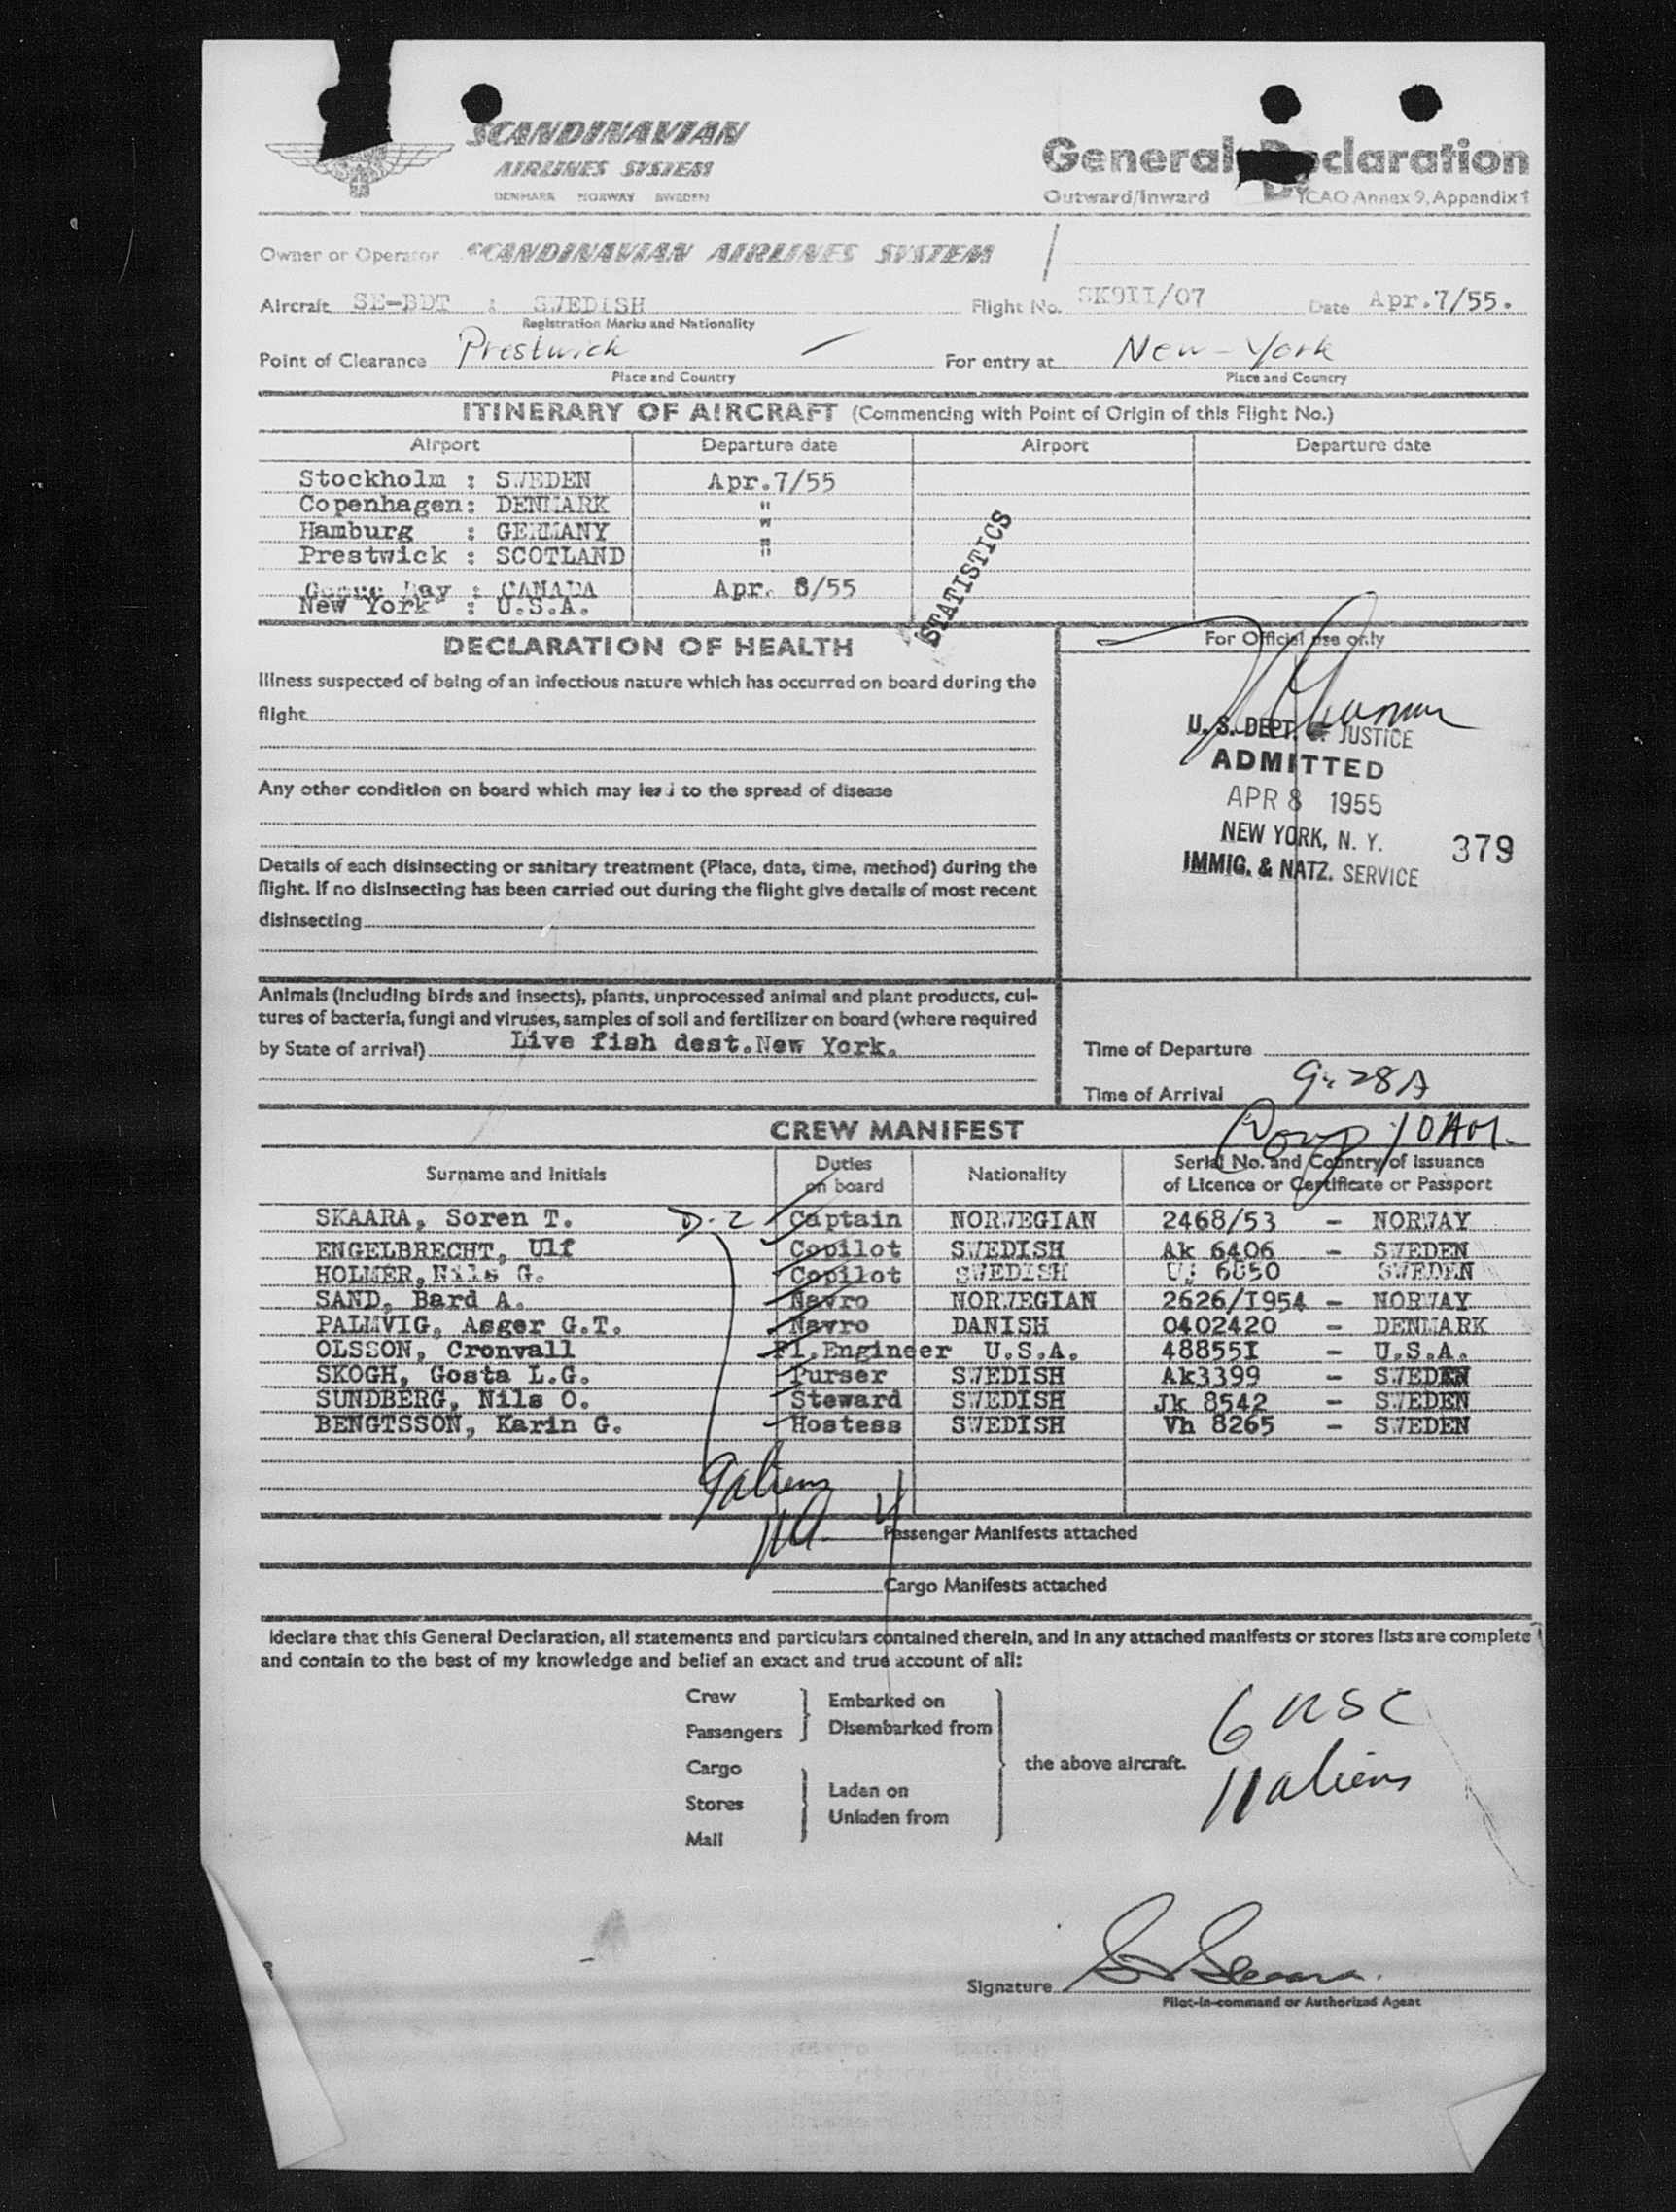 SCANDINAVIAN
AIRLINES SYSTEM
DENMARK NORWAY SWEDEN
General Declaration
Outward/Inward ICAO Annex 9, Appendix 1
Owner or Operator SCANDINAVIAN AIRLINES SYSTEM
Aircraft SE-BDT : SWEDISH Flight No. SK9II/07 Date Apr.7/55.
Registration Marks and Nationality
Point of Clearance Prestwick For entry at New-York
Place and Country Place and Country
ITINERARY OF AIRCRAFT (Commencing with Point of Origin of this Flight No.)
Airport Departure date Airport Departure date
Stockholm : SWEDEN Apr.7/55
Copenhagen: DENMARK "
Hamburg : GERMANY "
Prestwick : SCOTLAND "
Goose Bay : CANADA Apr. 8/55
New York : U.S.A.
STATISTICS
DECLARATION OF HEALTH
For Official use only
Illness suspected of being of an infectious nature which has occurred on board during the
flight
U. S. DEPT. OF JUSTICE
ADMITTED
APR 8 1955
NEW YORK, N. Y. 379
IMMIG. & NATZ. SERVICE
Any other condition on board which may lead to the spread of disease
Details of each disinsecting or sanitary treatment (Place, date, time, method) during the
flight. If no disinsecting has been carried out during the flight give details of most recent
disinsecting
Animals (including birds and insects), plants, unprocessed animal and plant products, cul-
tures of bacteria, fungi and viruses, samples of soil and fertilizer on board (where required
by State of arrival) Live fish dest.New York.
Time of Departure
Time of Arrival 9:28A
10AM
CREW MANIFEST
Surname and Initials Duties on board Nationality Serial No. and Country of issuance of Licence or Certificate or Passport
SKAARA, Soren T. D-2 Captain NORWEGIAN 2468/53 - NORWAY
ENGELBRECHT, Ulf Copilot SWEDISH Ak 6406 - SWEDEN
HOLMER, Nils G. Copilot SWEDISH 6050 SWEDEN
SAND, Bard A. Navro NORWEGIAN 2626/I954 - NORWAY
PALMVIG, Asger G.T. Navro DANISH 0402420 - DENMARK
OLSSON, Cronvall Fl.Engineer U.S.A. 48855I - U.S.A.
SKOGH, Gosta L.G. Purser SWEDISH Ak3399 - SWEDEN
SUNDBERG, Nils O. Steward SWEDISH Jk 8542 - SWEDEN
BENGTSSON, Karin G. Hostess SWEDISH Vh 8265 - SWEDEN
9 aliens
Passenger Manifests attached
Cargo Manifests attached
I declare that this General Declaration, all statements and particulars contained therein, and in any attached manifests or stores lists are complete
and contain to the best of my knowledge and belief an exact and true account of all:
Crew Embarked on
Passengers Disembarked from
Cargo the above aircraft.
Stores Laden on
Mail Unladen from
6 USC
11 aliens
Signature
Pilot-in-command or Authorized Agent